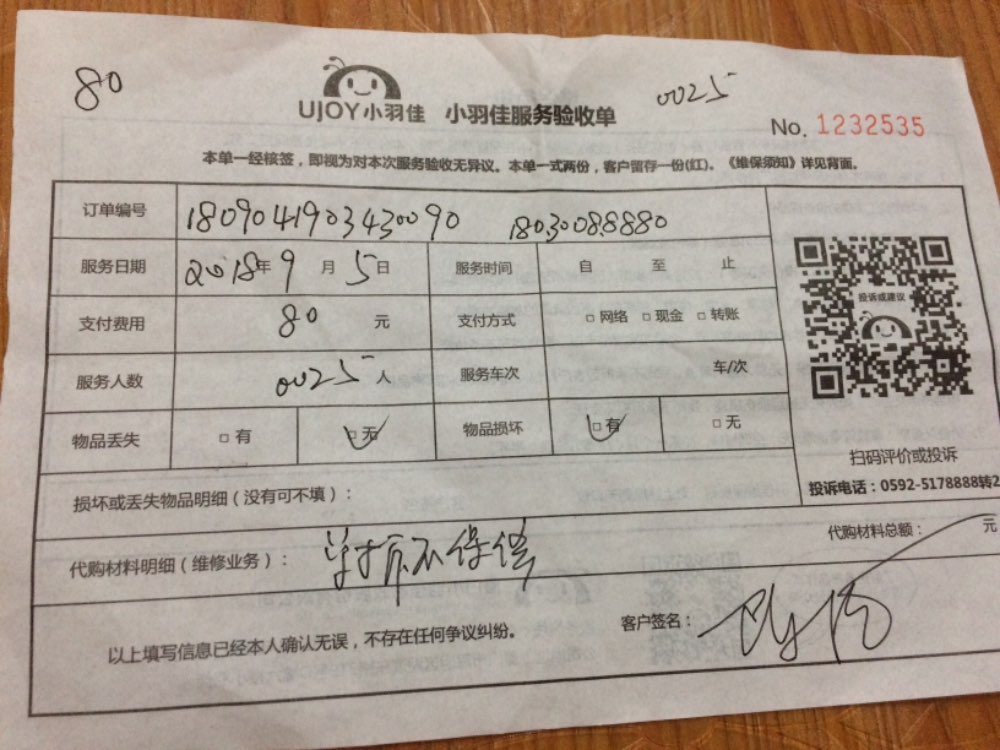 80
0025
UJOY小羽佳 小羽佳服务验收单
No. 1232535
本单一经核签，即视为对本次服务验收无异议。本单一式两份，客户留存一份(红)。《维保须知》详见背面。
订单编号 1809041903430090 18030088880
服务日期 2018年 9 月 5日 服务时间 自 至 止
投诉或建议
支付费用 80 元 支付方式 □ 网络 □ 现金 □ 转账
服务人数 0025 人 服务车次 车/次
物品丢失 □ 有 □ 无 物品损坏 □ 有 □ 无
扫码评价或投诉
投诉电话：0592-5178888转2
损坏或丢失物品明细（没有可不填）：
代购材料总额： 元
代购材料明细（维修业务）： 不保
客户签名：
以上填写信息已经本人确认无误，不存在任何争议纠纷。